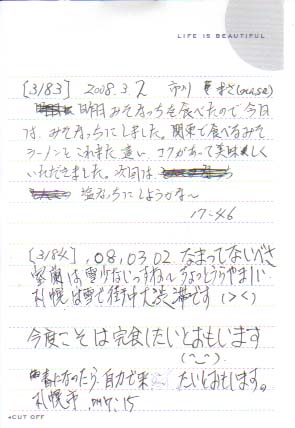 LIFE IS BEAUTIFUL
[3183] 2008.3.2 市川
昨日みそなっちを食べたので今日
は、みそなっちにしました。関東で食べるみそ
ラーメンとこれまた違い、コクがあって美味しく
いただきました。次回は、
塩なっちにしようかな〜
17-46
[3184] .08,03 02 なまってないべさ
室蘭は雪少ないっすね〜ちょっとうらやましい
札幌は雪で街中大渋滞です(><)
今度こそは完食したいとおもいます
春になったら、自力で来たいとおもします。
札幌市
◂CUT OFF